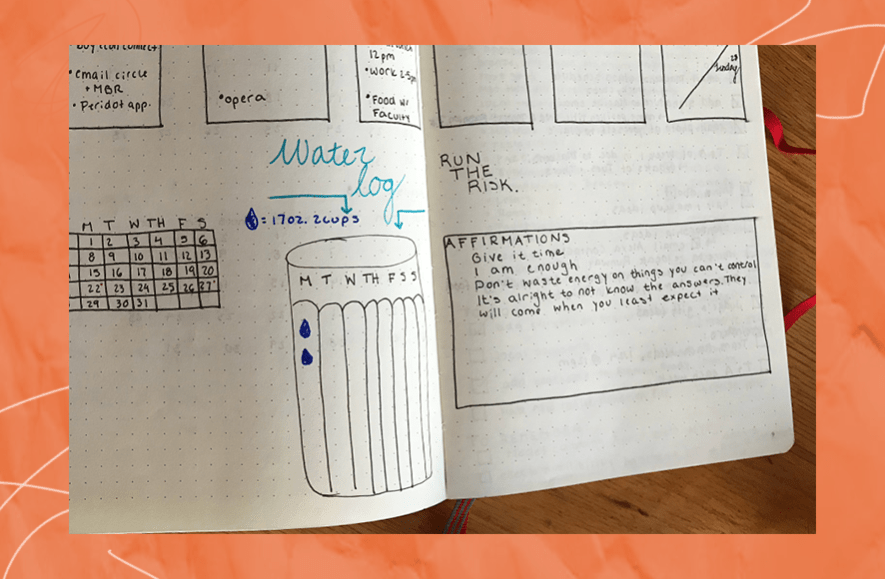 • email circle
+ MBR
• Peridot app.
• opera
12pm
• work 2-5pm
• Food w/
Faculty
28
Sunday
Water
log
= 17oz. 2cups
M T W TH F S
1 2 3 4 5 6
8 9 10 11 12 13
15 16 17 18 19 20
22 23 24 25 26 27
29 30 31
M T W TH F S S
RUN
THE
RISK.
AFFIRMATIONS
Give it time
I am enough
Don't waste energy on things you can't control
It's alright to not know the answers. They
will come when you least expect it